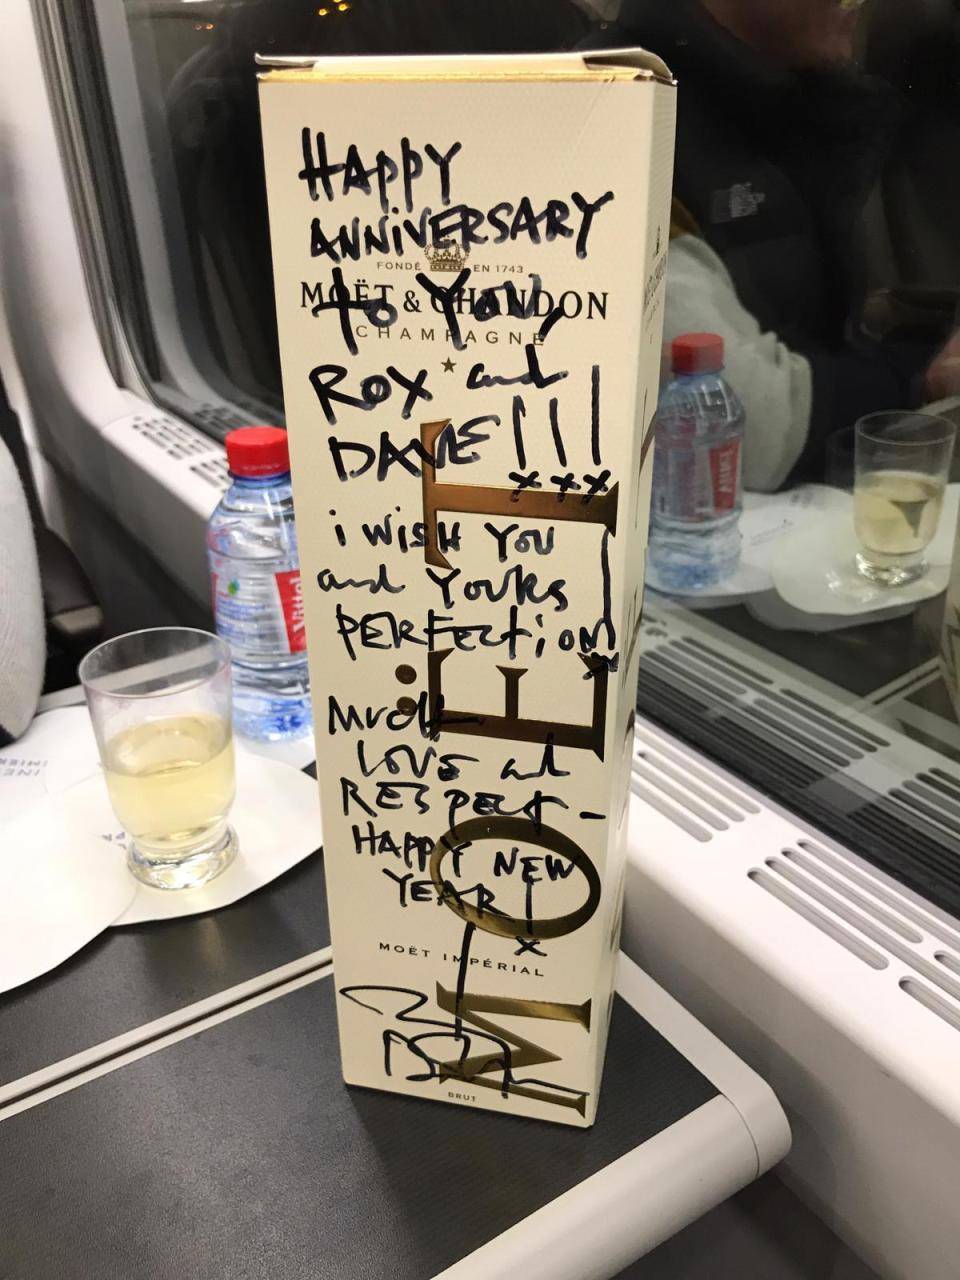 HAPPY
ANNiVERSARY
FONDÉ EN 1743
to You,
MOËT & CHANDON
CHAMPAGNE
ROX and
DAVE!!!
xxx
i wish You
and Yours
PERFEctioN!
x
MOËT
Much
LOVE and
RESpect -
HAPPY NEW
YEAR!
x
MOËT IMPÉRIAL
BRUT
Vittel